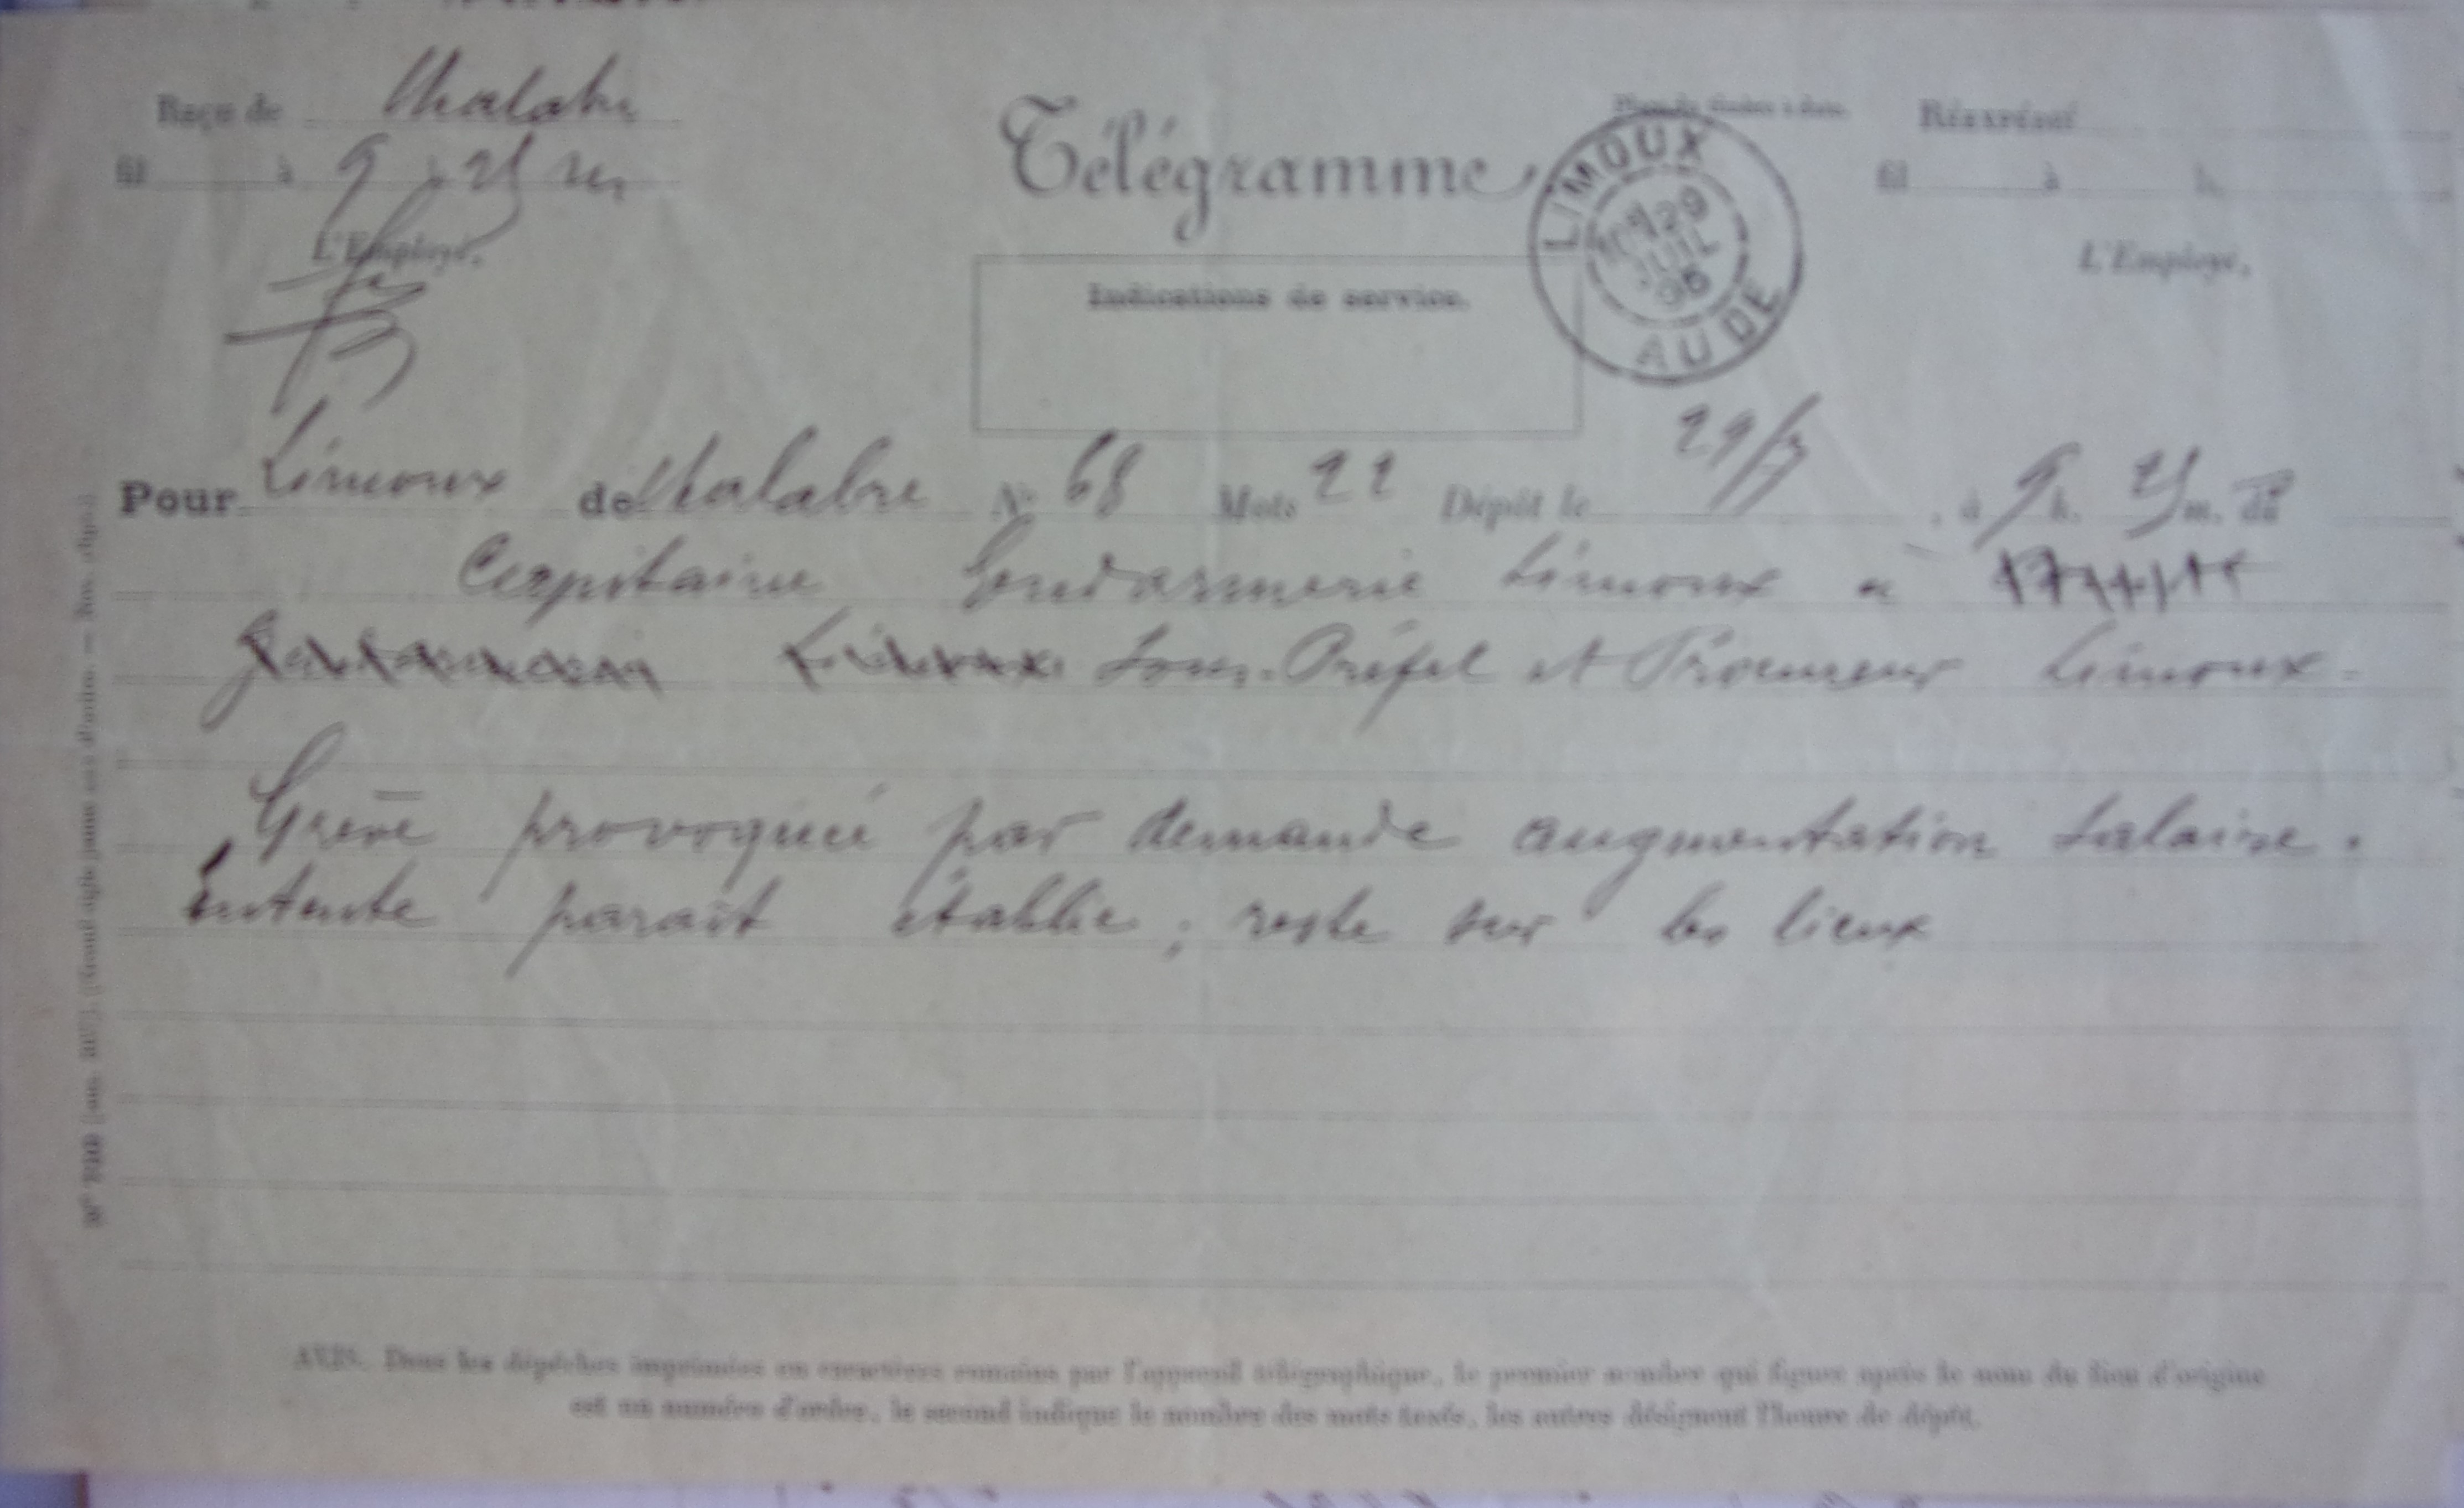 Reçu de Chalabre
Télégramme
Place du timbre à date.
Réexpédié
fil à 9 h 25 m
fil à h.
L'Employé,
L'Employé,
LIMOUX
29
JUIL
96
AUDE
Indications de service.
Pour Limoux de Chalabre N° 68 Mots 22 Dépôt le 29/7, à 9 h. 25 m. du
Capitaine Gendarmerie Limoux a
Sous-Préfet et Procureur Limoux =
Grève provoquée par demande augmentation salaire.
Entente parait établie ; reste sur les lieux
AVIS. Dans les dépêches imprimées en caractères romains par l'appareil télégraphique, le premier nombre qui figure après le nom du lieu d'origine
est un numéro d'ordre, le second indique le nombre des mots taxés, les autres désignent l'heure de dépôt.